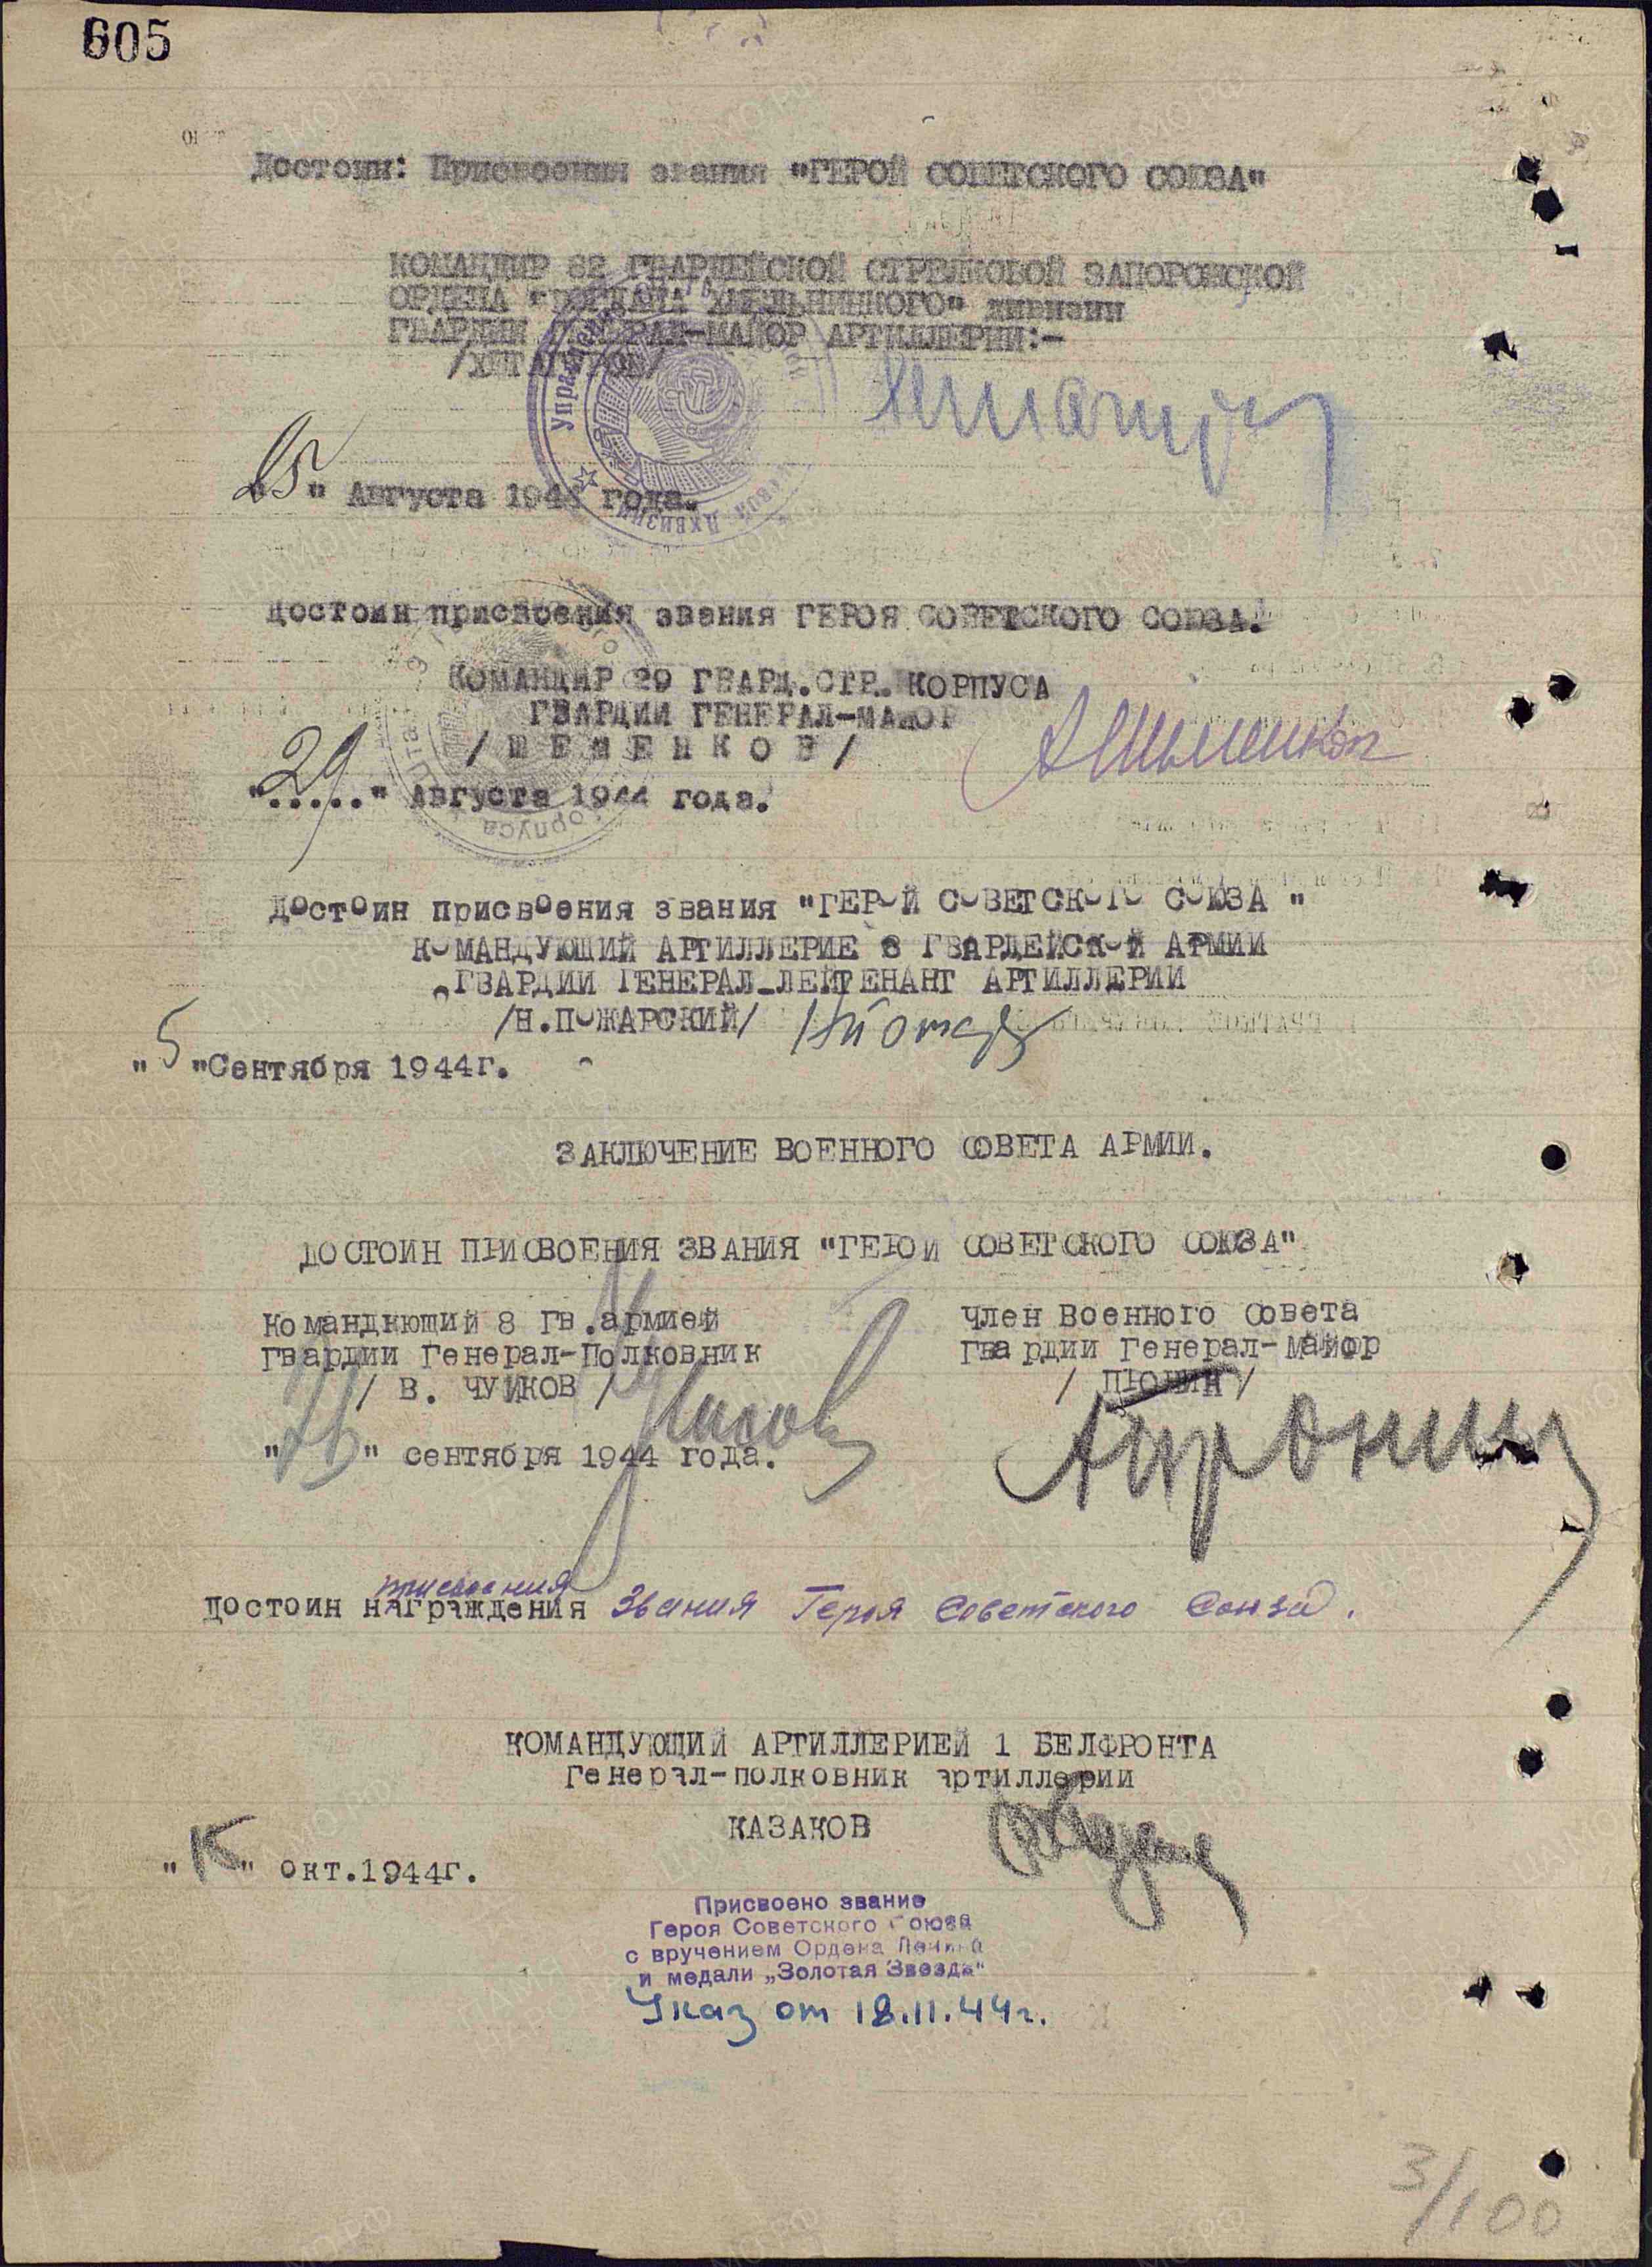 605
Достоин: Присвоения звания "ГЕРОЙ СОВЕТСКОГО СОЮЗА"
КОМАНДИР 82 ГВАРДЕЙСКОЙ СТРЕЛКОВОЙ ЗАПОРОЖСКОЙ
ОРДЕНА "БОГДАНА ХМЕЛЬНИЦКОГО" дивизии
ГВАРДИИ ГЕНЕРАЛ-МАЙОР АРТИЛЛЕРИИ:-
/ХЕТАГУРОВ/
25 " Августа 1944 года.
Достоин присвоения звания ГЕРОЯ СОВЕТСКОГО СОЮЗА.
КОМАНДИР 29 ГВАРД.СТР. КОРПУСА
ГВАРДИИ ГЕНЕРАЛ-МАЙОР
/ Ш Е М Е Н К О В /
"29" Августа 1944 года.
Достоин присвоения звания "ГЕРОЙ СОВЕТСКОГО СОЮЗА "
КОМАНДУЮЩИЙ АРТИЛЛЕРИЕ 8 ГВАРДЕЙСКОЙ АРМИИ
ГВАРДИИ ГЕНЕРАЛ-ЛЕЙТЕНАНТ АРТИЛЛЕРИИ
/Н.ПОЖАРСКИЙ/
" 5 "Сентября 1944г.
ЗАКЛЮЧЕНИЕ ВОЕННОГО СОВЕТА АРМИИ.
ДОСТОИН ПРИСВОЕНИЯ ЗВАНИЯ "ГЕРОЙ СОВЕТСКОГО СОЮЗА"
Командующий 8 Гв.армией Член Военного Совета
Гвардии Генерал-Полковник Гвардии Генерал-Майор
/ В. ЧУЙКОВ / / ПРОНИН /
" " сентября 1944 года.
присвоения
достоин награждения звания Героя Советского Союза.
КОМАНДУЮЩИЙ АРТИЛЛЕРИЕЙ 1 БЕЛФРОНТА
Генерал-полковник артиллерии
КАЗАКОВ
" " окт.1944г.
Присвоено звание
Героя Советского Союза
с вручением Ордена Ленина
и медали „Золотая Звезда"
Указ от 18.11.44г.
3/100